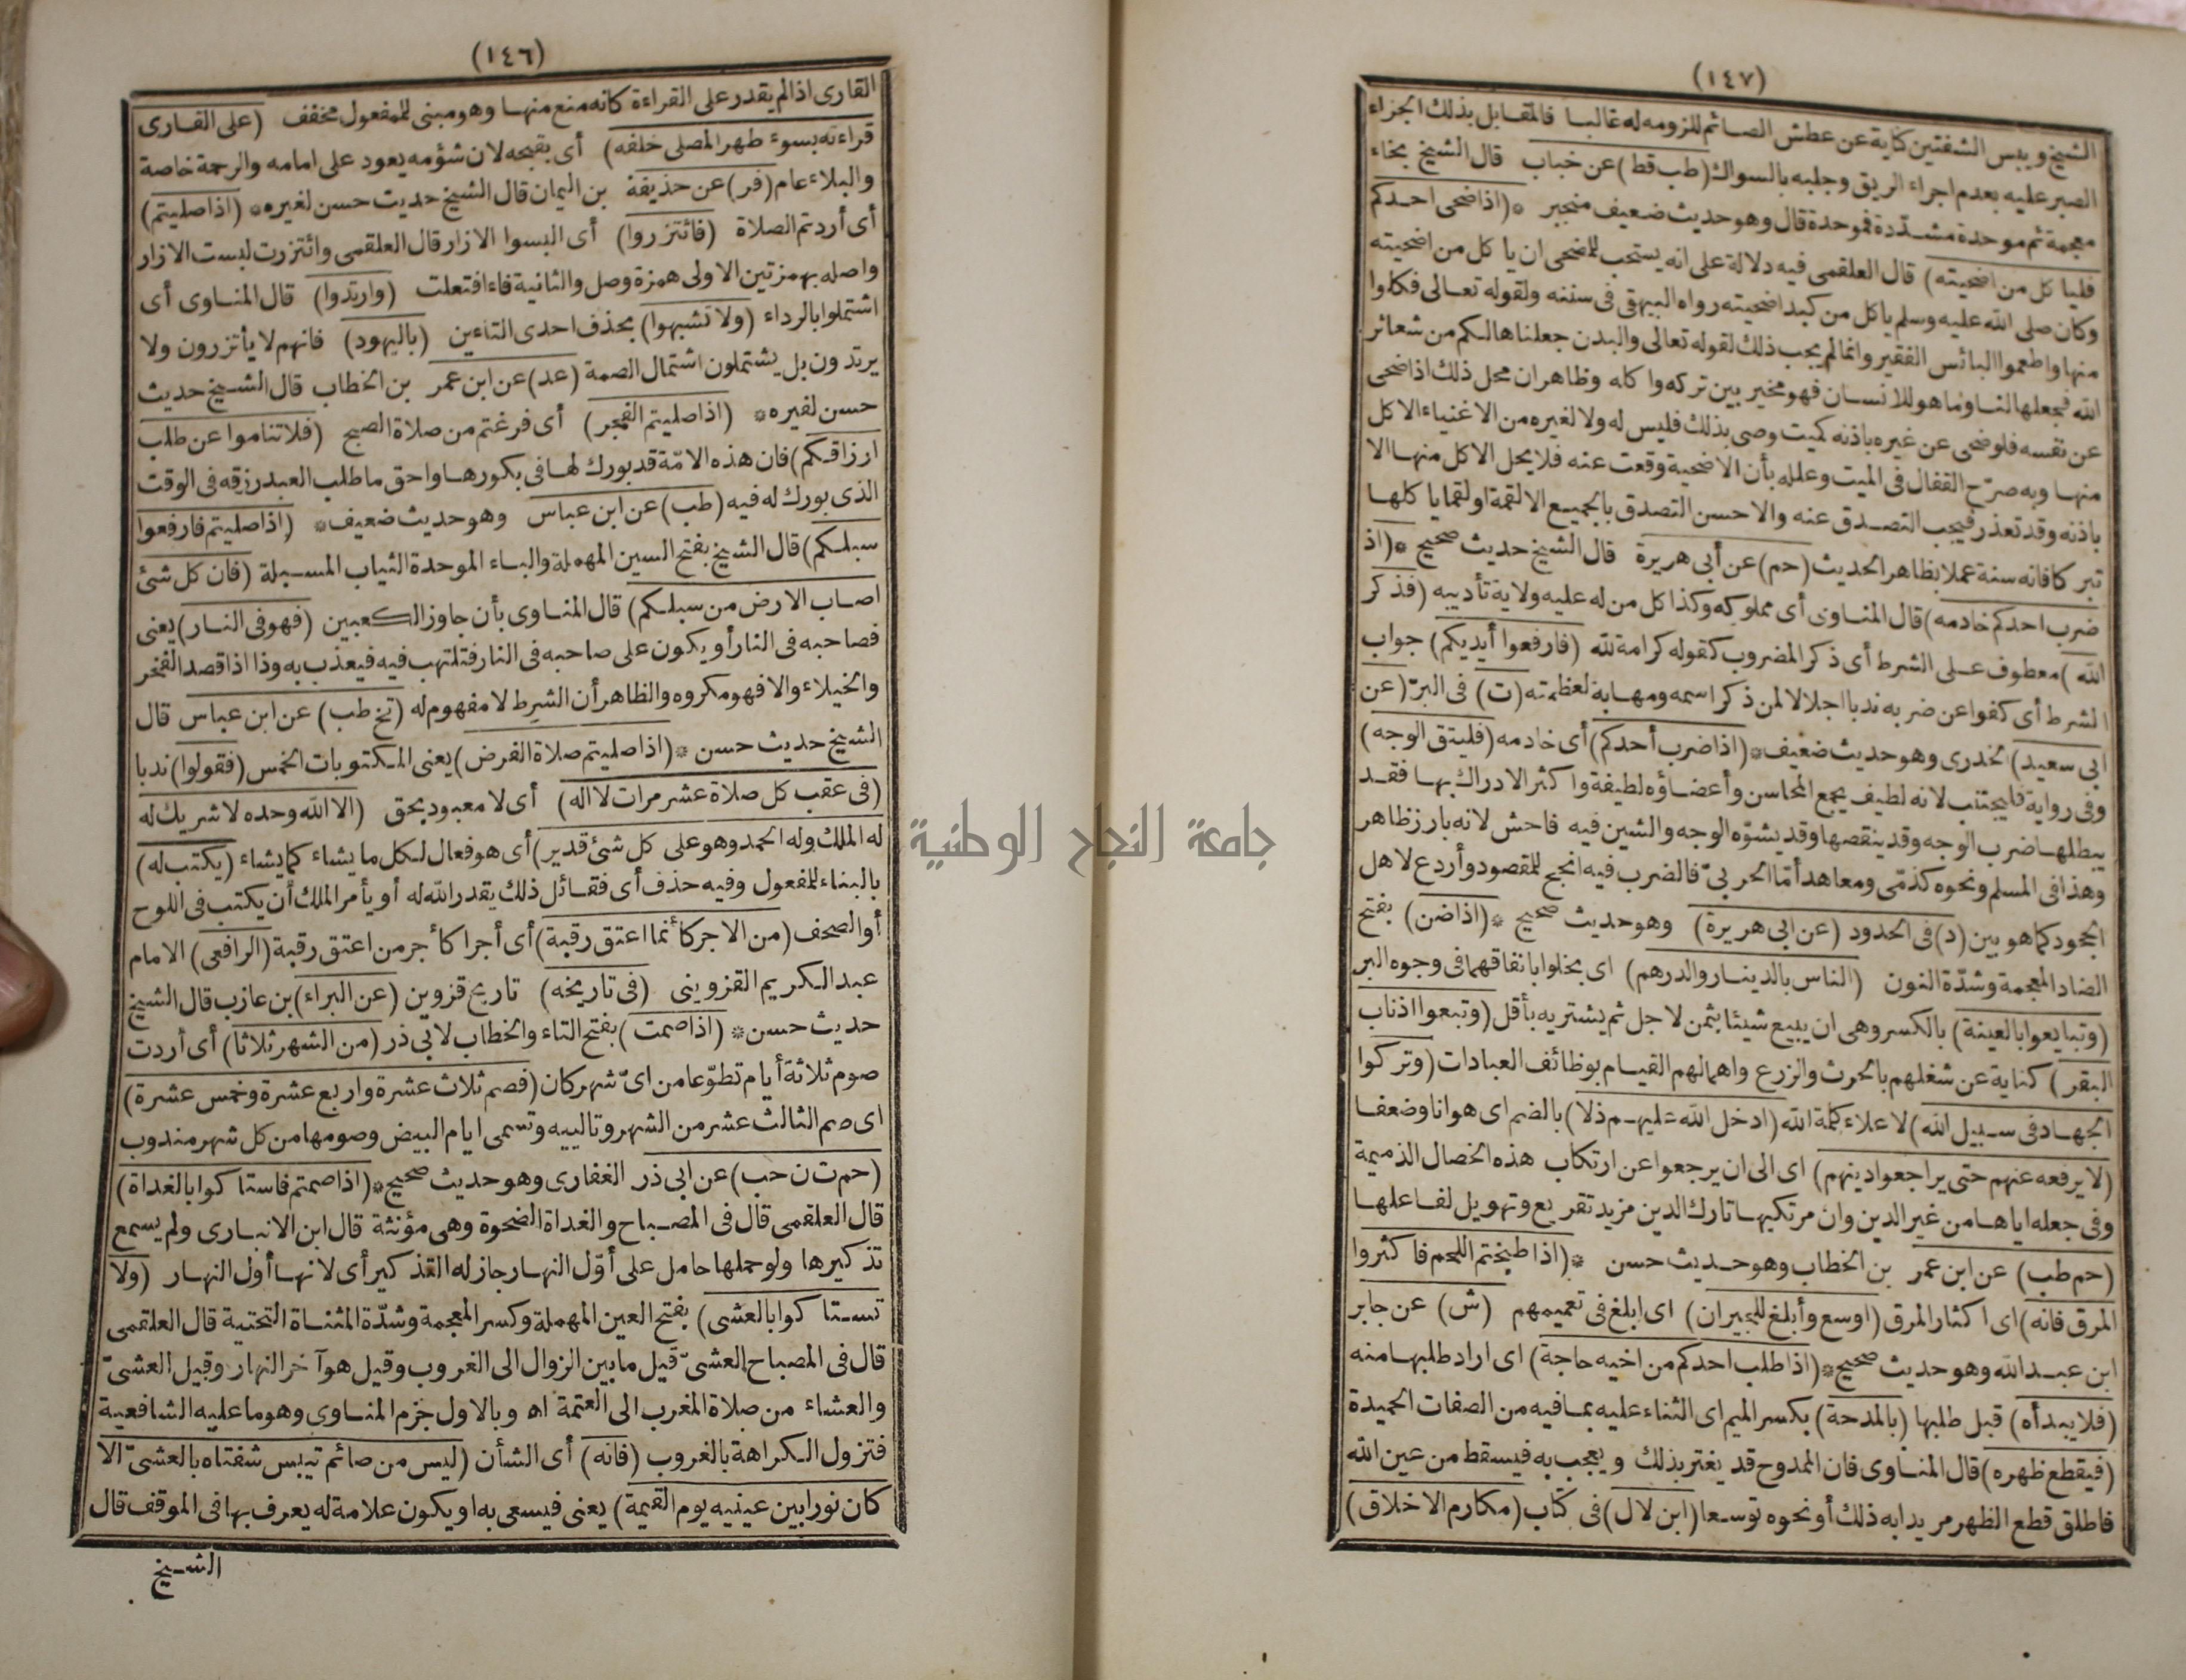 (١٤٦)
القارى اذا لم يقدر على القراءة كانه منع منها وهو مبنى للمفعول مخفف (على القارى
قراءته بسوء طهر المصلى خلفه) أى بقبحه لان شؤمه يعود على امامه والرحمة خاصة
والبلاء عام (فر) عن حذيفة بن اليمان قال الشيخ حديث حسن لغيره * (اذا صليتم)
أى أردتم الصلاة (فائتزروا) أى البسوا الازار قال العلقمى وائتزرت لبست الازار
واصله بهمزتين الاولى همزة وصل والثانية فاء افتعلت (وارتدوا) قال المناوى أى
اشتملوا بالرداء (ولا تشبهوا) بحذف احدى التاءين (باليهود) فانهم لا يأتزرون ولا
يرتدون بل يشتملون اشتمال الصمة (عد) عن ابن عمر بن الخطاب قال الشيخ حديث
حسن لغيره * (اذا صليتم الفجر) أى فرغتم من صلاة الصبح (فلا تناموا عن طلب
ارزاقكم) فان هذه الامّة قد بورك لها فى بكورها واحق ما طلب العبد رزقه فى الوقت
الذى بورك له فيه (طب) عن ابن عباس وهو حديث ضعيف * (اذا صليتم فارفعوا
سبلكم) قال الشيخ بفتح السين المهملة والباء الموحدة الثياب المسبلة (فان كل شئ
اصاب الارض من سبلكم) قال المناوى بأن جاوز الكعبين (فهو فى النار) يعنى
فصاحبه فى النار أو يكون على صاحبه فى النار فتلتهب فيه فيعذب به وذا اذا قصد الفخر
والخيلاء والا فهو مكروه والظاهر أن الشرط لا مفهوم له (تخ طب) عن ابن عباس قال
الشيخ حديث حسن * (اذا صليتم صلاة الفرض) يعنى المكتوبات الخمس (فقولوا) ندبا
(فى عقب كل صلاة عشر مرات لا اله) أى لا معبود بحق (الا الله وحده لا شريك له
له الملك وله الحمد وهو على كل شئ قدير) أى هو فعال لكل ما يشاء كما يشاء (يكتب له)
بالبناء للمفعول وفيه حذف أى فقائل ذلك يقدر الله له أو يأمر الملك أن يكتب فى اللوح
أو الصحف (من الاجر كأنما اعتق رقبة) أى أجرا كأجر من اعتق رقبة (الرافعى) الامام
عبد الكريم القزوينى (فى تاريخه) تاريخ قزوين (عن البراء) بن عازب قال الشيخ
حديث حسن * (اذا صمت) بفتح التاء والخطاب لابى ذر (من الشهر ثلاثا) أى أردت
صوم ثلاثة أيام تطوّعا من اىّ شهر كان (فصم ثلاث عشرة واربع عشرة وخمس عشرة)
اى صم الثالث عشر من الشهر وتالييه وتسمى ايام البيض وصومها من كل شهر مندوب
(حم ت ن حب) عن ابى ذر الغفارى وهو حديث صحيح * (اذا صمتم فاستاكوا بالغداة)
قال العلقمى قال فى المصباح والغداة الضحوة وهى مؤنثة قال ابن الانبارى ولم يسمع
تذكيرها ولو حملها حامل على أوّل النهار جاز له التذكير أى لانها أول النهار (ولا
تستاكوا بالعشى) بفتح العين المهملة وكسر المعجمة وشدّة المثناة التحتية قال العلقمى
قال فى المصباح العشىّ قيل ما بين الزوال الى الغروب وقيل هو آخر النهار وقيل العشىّ
والعشاء من صلاة المغرب الى العتمة اه وبالاول جزم المناوى وهو ما عليه الشافعية
فتزول الكراهة بالغروب (فانه) أى الشأن (ليس من صائم تيبس شفتاه بالعشىّ الا
كان نورا بين عينيه يوم القيمة) يعنى فيسعى به او يكون علامة له يعرف بها فى الموقف قال
الشيخ
(١٤٧)
الشيخ ويبس الشفتين كناية عن عطش الصائم للزومه له غالبا فالمقابل بذلك الجزاء
الصبر عليه بعدم اجراء الريق وجلبه بالسواك (طب قط) عن خباب قال الشيخ بخاء
معجمة ثم موحدة مشدّدة فموحدة قال وهو حديث ضعيف منجبر * (اذا ضحى احدكم
فلياكل من اضحيته) قال العلقمى فيه دلالة على انه يستحب للمضحى ان ياكل من اضحيته
وكان صلى الله عليه وسلم ياكل من كبد اضحيته رواه البيهقى فى سننه ولقوله تعالى فكلوا
منها واطعموا البائس الفقير وانما لم يجب ذلك لقوله تعالى والبدن جعلناها لكم من شعائر
الله فجعلها لنا وما هو للانسان فهو مخير بين تركه واكله وظاهر ان محل ذلك اذا ضحى
عن نفسه فلو ضحى عن غيره باذنه كميت وصى بذلك فليس له ولا لغيره من الاغنياء الاكل
منها وبه صرّح القفال فى الميت وعلله بأن الاضحية وقعت عنه فلا يحل الاكل منها الا
باذنه وقد تعذر فيجب التصدق عنه والاحسن التصدق بالجميع الا لقمة او لقما ياكلها
تبركا فانه سنة عملا بظاهر الحديث (حم) عن أبى هريرة قال الشيخ حديث صحيح * (اذ
ضرب احدكم خادمه) قال المناوى أى مملوكه وكذا كل من له عليه ولاية تأديبه (فذكر
الله) معطوف على الشرط أى ذكر المضروب كقوله كرامة لله (فارفعوا أيديكم) جواب
الشرط أى كفوا عن ضربه ندبا اجلالا لمن ذكر اسمه ومهابة لعظمته (ت) فى البرّ (عن
ابى سعيد) الخدرى وهو حديث ضعيف * (اذا ضرب أحدكم) أى خادمه (فليتق الوجه)
وفى رواية فليجتنب لانه لطيف يجمع المحاسن وأعضاؤه لطيفة واكثر الادراك بها فقد
يبطلها ضرب الوجه وقد ينقصها وقد يشوّه الوجه والشين فيه فاحش لانه بارز ظاهر
وهذا فى المسلم ونحوه كذمّى ومعاهد أمّا الحربىّ فالضرب فيه انجح للمقصود وأردع لاهل
الجحود كما هو بين (د) فى الحدود (عن ابى هريرة) وهو حديث صحيح * (اذا ضن) بفتح
الضاد المعجمة وشدّة النون (الناس بالدينار والدرهم) اى بخلوا بانفاقهما فى وجوه البر
(وتبايعوا بالعينة) بالكسر وهى ان يبيع شيئا بثمن لاجل ثم يشتريه بأقل (وتبعوا اذناب
البقر) كناية عن شغلهم بالحرث والزرع واهمالهم القيام بوظائف العبادات (وتركوا
الجهاد فى سبيل الله) لاعلاء كلمة الله (ادخل الله عليهم ذلا) بالضم اى هوانا وضعفا
(لا يرفعه عنهم حتى يراجعوا دينهم) اى الى ان يرجعوا عن ارتكاب هذه الخصال الذميمة
وفى جعله اياها من غير الدين وان مرتكبها تارك الدين مزيد تقريع وتهويل لفاعلها
(حم طب) عن ابن عمر بن الخطاب وهو حديث حسن * (اذا طبختم اللحم فاكثروا
المرق فانه) اى اكثار المرق (اوسع وأبلغ للجيران) اى ابلغ فى تعميمهم (ش) عن جابر
ابن عبد الله وهو حديث صحيح * (اذا طلب احدكم من اخيه حاجة) اى اراد طلبها منه
(فلا يبدأه) قبل طلبها (بالمدحة) بكسر الميم اى الثناء عليه بما فيه من الصفات الحميدة
(فيقطع ظهره) قال المناوى فان الممدوح قد يغتر بذلك ويعجب به فيسقط من عين الله
فاطلق قطع الظهر مريدا به ذلك أو نحوه توسعا (ابن لال) فى كتاب (مكارم الاخلاق)
جامعة النجاح الوطنية